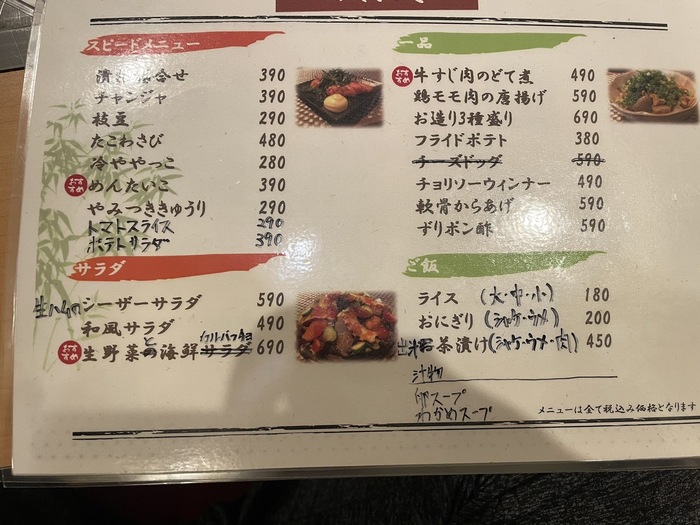 スピードメニュー
漬 合せ 390
チャンジャ 390
枝豆 290
たこわさび 480
冷ややっこ 280
おすすめ めんたいこ 390
やみつききゅうり 290
トマトスライス 290
ポテトサラダ 390
サラダ
生ハムのシーザーサラダ 590
和風サラダ 490
おすすめ 生野菜と海鮮サラダ 690
一品
おすすめ 牛すじ肉のどて煮 490
鶏モモ肉の唐揚げ 590
お造り3種盛り 690
フライドポテト 380
チーズドッグ 590
チョリソーウィンナー 490
軟骨からあげ 590
ずりポン酢 590
ご飯
ライス (大・中・小) 180
おにぎり (シャケ・ウメ) 200
出汁 茶漬け(シャケ・ウメ・肉) 450
汁物
卵スープ
わかめスープ
メニューは全て税込み価格となります